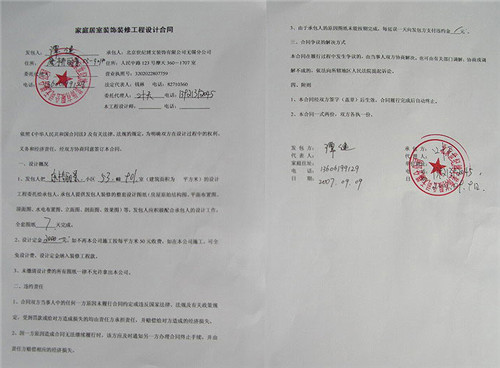 家庭居室装饰装修工程设计合同
发包人：谭健
承包人：北京世纪捷文装饰有限公司无锡分公司
住所：
住所：人民中路123号摩天360-1307室
委托代
营业执照号：3202022807759
电话：
法定代表人：钱捷 电话：82710360
委托代理人： 电话：
本工程设计师： 电话：
依照《中华人民共和国合同法》及有关法律、法规的规定，为明确双方在设计过程中的权利、
义务和经济责任，经双方协商同意签订本合同。
一、设计概况
1、发包人把 小区 53 幢 （建筑面积为 平方米）的设计
工程委托给承包人，承包人提供发包人装修的整套设计图纸（含居家原始结构图、平面布置图、
顶面图、水电布置图、立面图、剖面图、效果图）等，发包人应积极配合承包人的设计工作，
全套图纸 7 天完成。
2、设计定金 如不到本公司施工按每平方米50元收费，如由本公司施工，可全
免设计费，设计定金纳入装修工程款。
3、未缴清设计费的所有图纸一律不允许拿出本公司。
二、违约责任
1、合同双方当事人中的任何一方因未履行合同约定或违反国家法律、法规及有关政策规
定，受到罚款或给对方造成损失的均由责任方承担责任，并赔偿给对方造成的经济损失。
2、因一方原因造成合同无法继续履行时，该方应及时通知另一方办理合同终止手续，并由
责任方赔偿相应的经济损失。
3、由于承包人原因图纸未能按期完成，每延误一天向发包方支付违约金 元。
三、合同争议的解决方式
本合同在履行过程中发生争议的，由当事人双方协商解决，也可由有关部门调解，协商或调
解不成的，依法向所辖地区人民法院提起诉讼。
四、附则
1、本合同经双方签字（盖章）后生效，合同履行完成后自动终止。
2、本合同一式两份，双方各执一份。
发包方：谭健
承包方：
代表人：
代表人：
家庭住址：
电话：13606199129
电话：
日期：2007.09.09
日期：